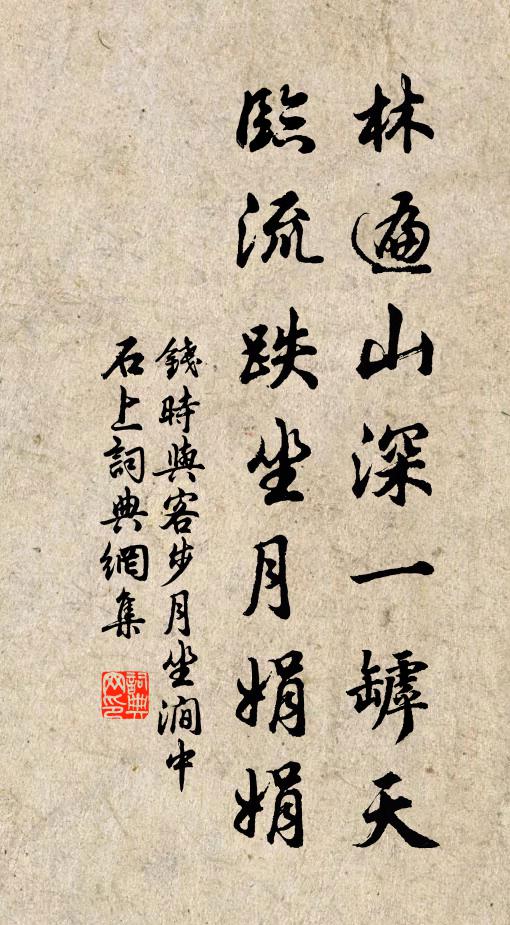 林遍山深一罅天
臨流跌坐月娟娟
錢時與客步月坐澗中
石上詞典網集
詞典網印